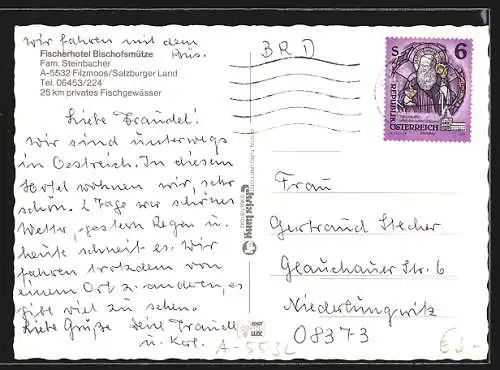 Wir fahren mit dem
Bus.
Fischerhotel Bischofsmütze
Fam. Steinbacher
A-5532 Filzmoos/Salzburger Land
Tel. 06453/224
25 km privates Fischgewässer
Liebe Traudel!
Wir sind unterwegs
in Oestreich. In diesem
Hotel wohnen wir, sehr
schön. 2 Tage war schönes
Wetter, gestern Regen u.
heute schneit es. Wir
fahren trotzdem von
einem Ort z. anderen, es
gibt viel zu sehen.
Liebe Grüße Deine Traudl
u. Karl.
A-5532
BRD
S 6
REPUBLIK
ÖSTERREICH
Frau
Gertraud Stecher
Glauchauer Str. 6
Niederlungwitz
08373
€3-